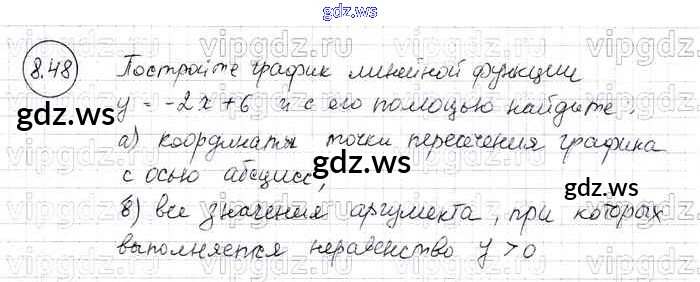 gdz.ws
vipgdz.ru vipgdz.ru vipgdz.ru
8.48 Постройте график линейной функции
y = -2x+6 и с его помощью найдите:
gdz.ws
а) координаты точки пересечения графика
gdz.ws
с осью абсцисс,
gdz.ws
в) все значения аргумента, при которых
выполняется неравенство y > 0
vipgdz.ru vipgdz.ru vipgdz.ru